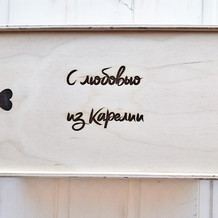 С любовью
из Карелии